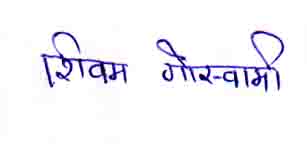 शिवम गोस्वामी